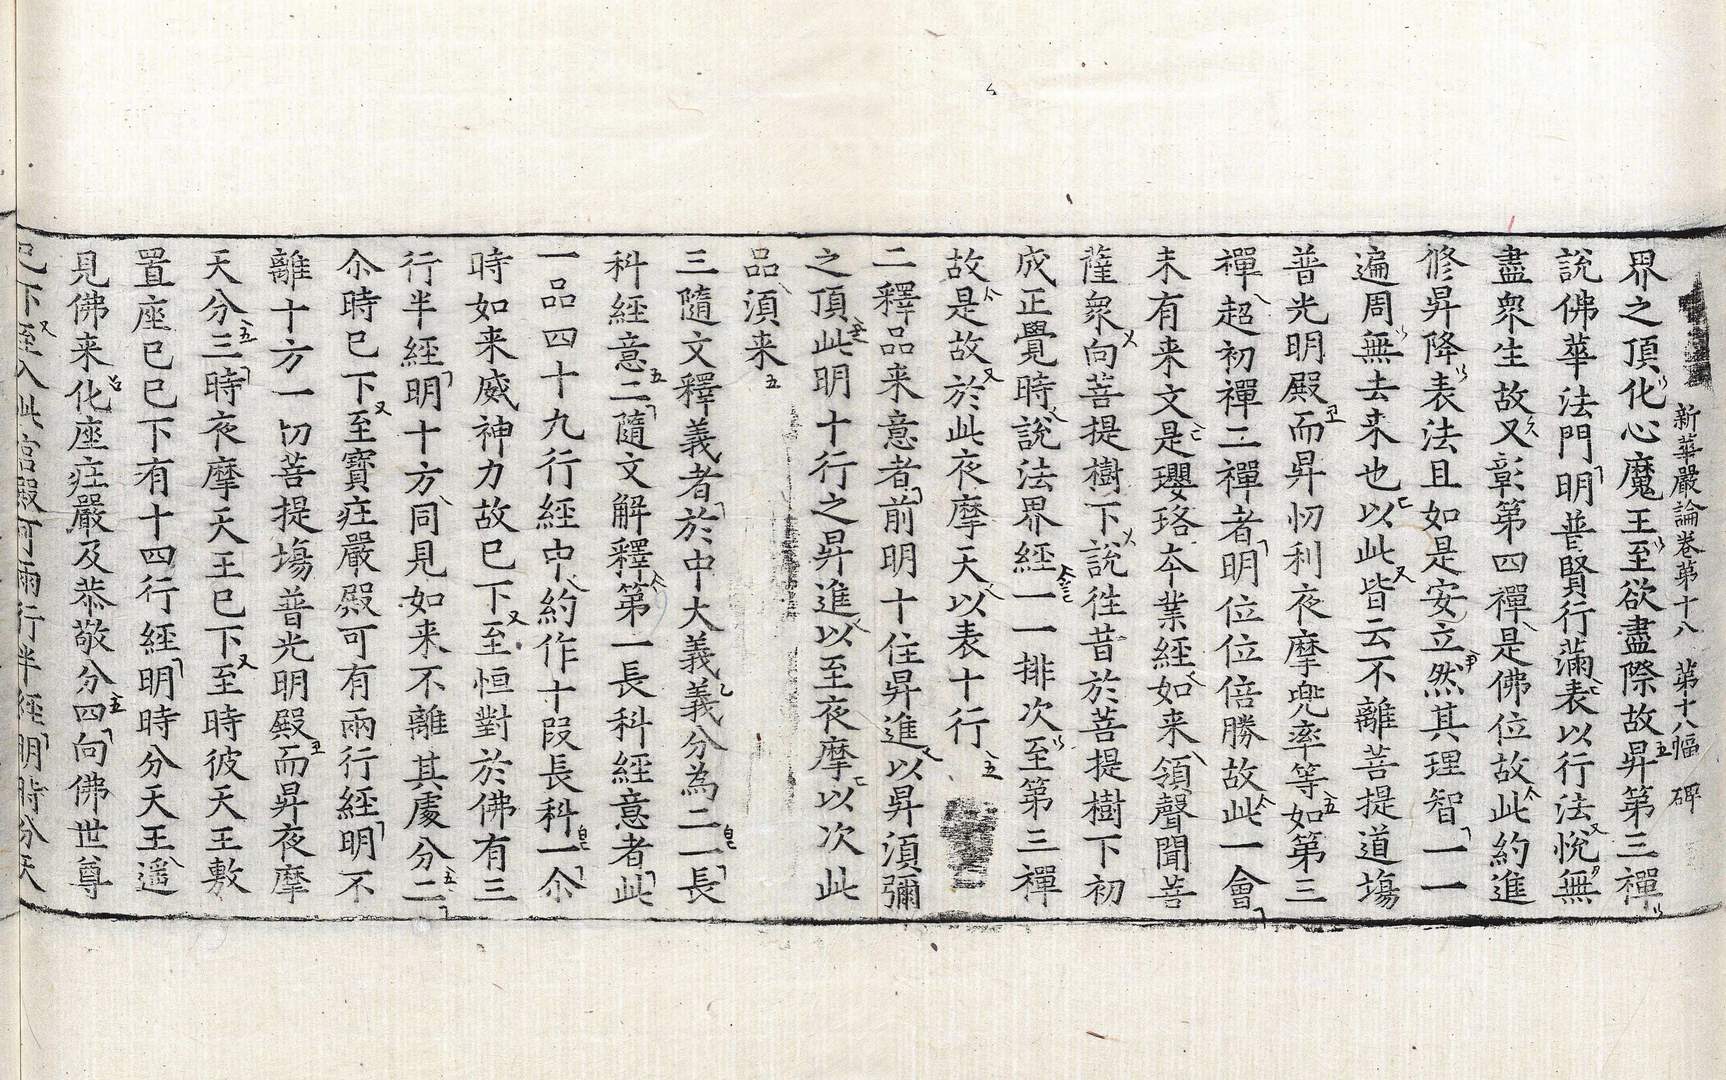 新華嚴論卷第十八　第十八幅　碑
界之頂化心魔王至欲盡際故昇第三禪
說佛華法門明普賢行滿表以行法悅無
盡衆生故又彰第四禪是佛位故此約進
修昇降表法且如是安立然其理智一一
遍周無去来也以此皆云不離菩提道塲
普光明殿而昇忉利夜摩兜率等如第三
禪超初禪二禪者明位位倍勝故此一會
未有来文是瓔珞夲業經如来領聲聞菩
薩衆向菩提樹下說徃昔於菩提樹下初
成正覺時說法界經一一排次至第三禪
故是故於此夜摩天以表十行
二釋品来意者前明十住昇進以昇須彌
之頂此明十行之昇進以至夜摩以次此
品須来
三隨文釋義者於中大義義分為二一長
科經意二隨文解釋第一長科經意者此
一品四十九行經中約作十段長科一尒
時如来威神力故巳下至恒對於佛有三
行半經明十方同見如来不離其處分二
尒時巳下至寶庄嚴殿可有兩行經明不
離十方一切菩提塲普光明殿而昇夜摩
天分三時夜摩天王巳下至時彼天王敷
置座巳巳下有十四行經明時分天王遥
見佛来化座庄嚴及恭敬分四向佛世尊
巳下至入此宮殿可兩行半經明時分天